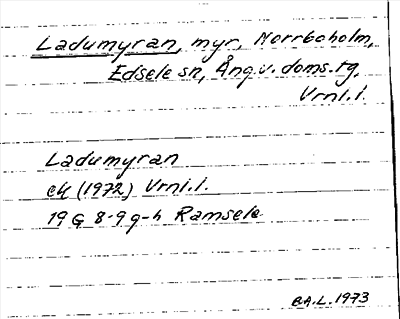 Ladumyran, myr, Norrboholm,
Edsele sn, Ång. v. doms. tg,
Vrnl. l.
Ladumyran
ek (1972) Vrnl. l.
19 G 8-9 g-h Ramsele
B.A.L. 1973